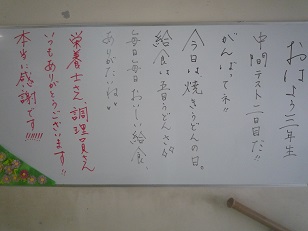 おはよう三年生
中間テスト二日目だ!!
がんばってネ!!
今日は焼きうどんの日。
給食は五目うどんさ
毎日毎日おいしい給食、
ありがたいねぃ
栄養士さん調理員さん
いつもありがとうございます!!
本当に感謝です!!!!!!